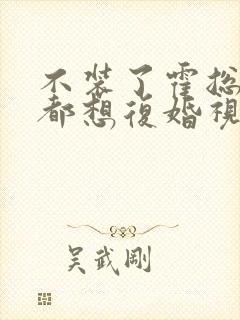 不装了霍总
都想復婚視
吴武剛